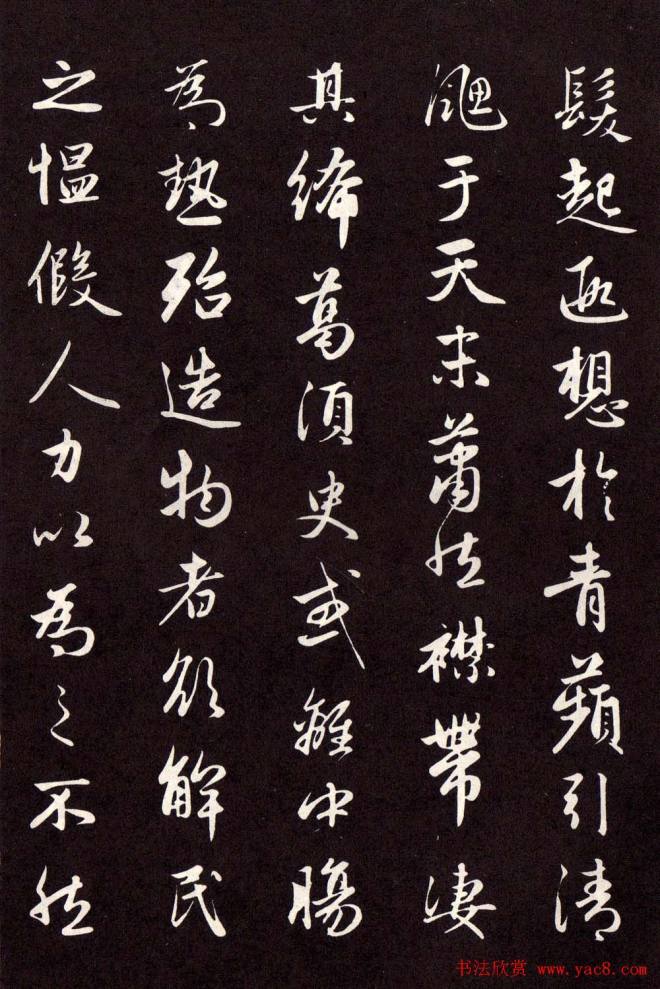 髮起遐想於青蘋引清
颸于天末蕭然襟帶淒
其絺葛須臾或離中暍
為熱殆造物者欲解民
之愠假人力以為之不然
书法欣赏 www.yac8.com